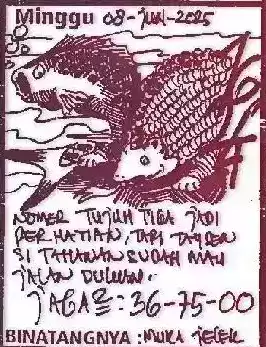 Minggu 08-JUN-2025
NOMER TUJUH TIGA JADI
PERHATIAN, TAPI TAYSEN
SI TAHANAN SUDAH MAU
JALAN DULUAN.
JAGA2: 36-75-00
BINATANGNYA: MUKA JELEK